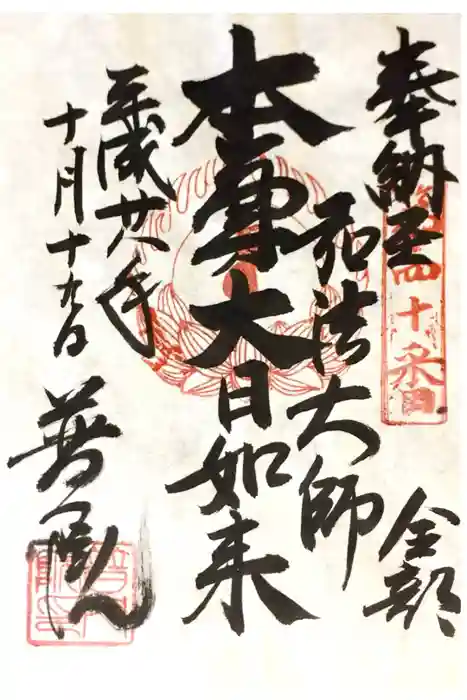 奉納
全部
四十番
弘法大師
本尊大日如来
平成廿八年
十月十九日
普門院